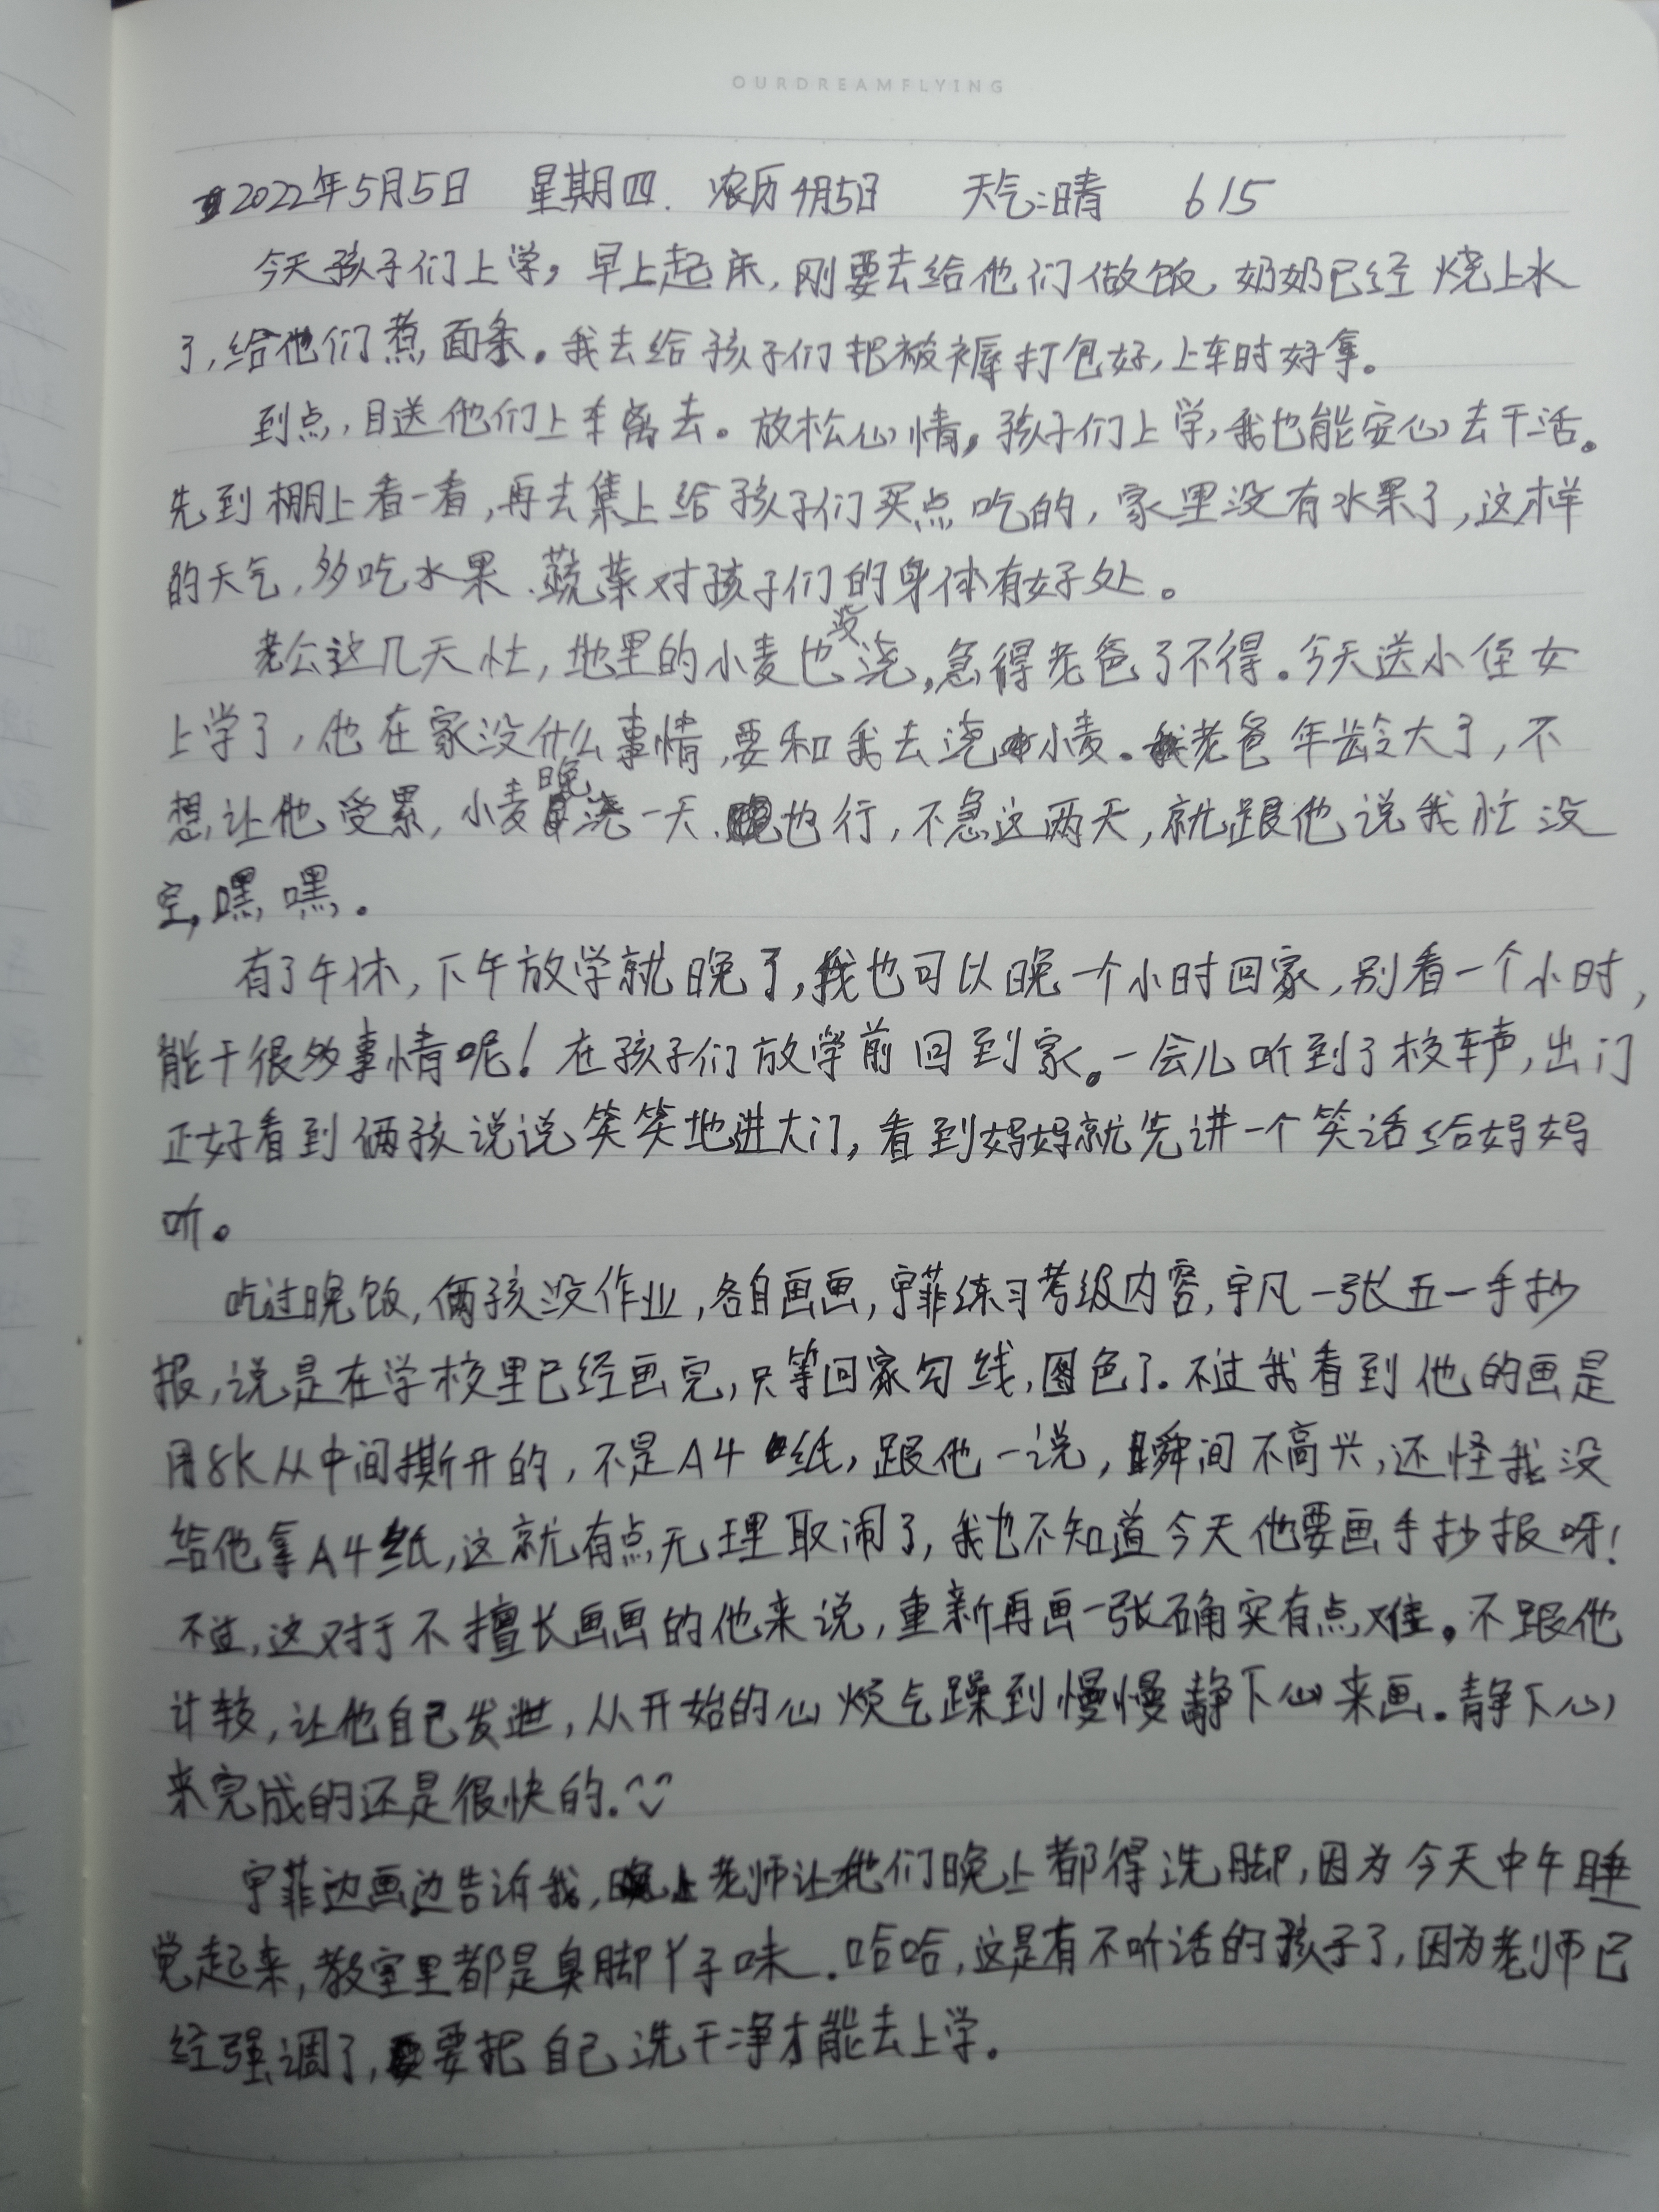 OURDREAMFLYING
2022年5月5日 星期四. 农历4月5日 天气:晴 615
今天孩子们上学，早上起床，刚要去给他们做饭，奶奶已经烧上水
了，给他们煮面条。我去给孩子们把被褥打包好，上车时好拿。
到点，目送他们上车离去。放松心情，孩子们上学，我也能安心去干活。
先到棚上看一看，再去集上给孩子们买点吃的，家里没有水果了，这样
的天气，多吃水果、蔬菜对孩子们的身体有好处。
老公这几天忙，地里的小麦也没浇，急得老爸了不得。今天送小侄女
上学了，他在家没什么事情，要和我去浇小麦。老爸年龄大了，不
想让他受累，小麦晚浇一天也行，不急这两天，就跟他说我忙没
空，嘿嘿。
有了午休，下午放学就晚了，我也可以晚一个小时回家，别看一个小时，
能干很多事情呢！在孩子们放学前回到家。一会儿听到了校车声，出门
正好看到俩孩说说笑笑地进大门，看到妈妈就先讲一个笑话给妈妈
听。
吃过晚饭，俩孩没作业，各自画画，宇菲练习考级内容，宇凡一张五一手抄
报，说是在学校里已经画完，只等回家勾线，图色了。不过我看到他的画是
用8K从中间撕开的，不是A4纸，跟他一说，瞬间不高兴，还怪我没
给他拿A4纸，这就有点无理取闹了，我也不知道今天他要画手抄报呀！
不过，这对于不擅长画画的他来说，重新再画一张确实有点难。不跟他
计较，让他自己发泄，从开始的心烦气躁到慢慢静下心来画。静下心
来完成的还是很快的.^◡^
宇菲边画边告诉我，老师让他们晚上都得洗脚，因为今天中午睡
觉起来，教室里都是臭脚丫子味.哈哈，这是有不听话的孩子了，因为老师已
经强调了，要把自己洗干净才能去上学。